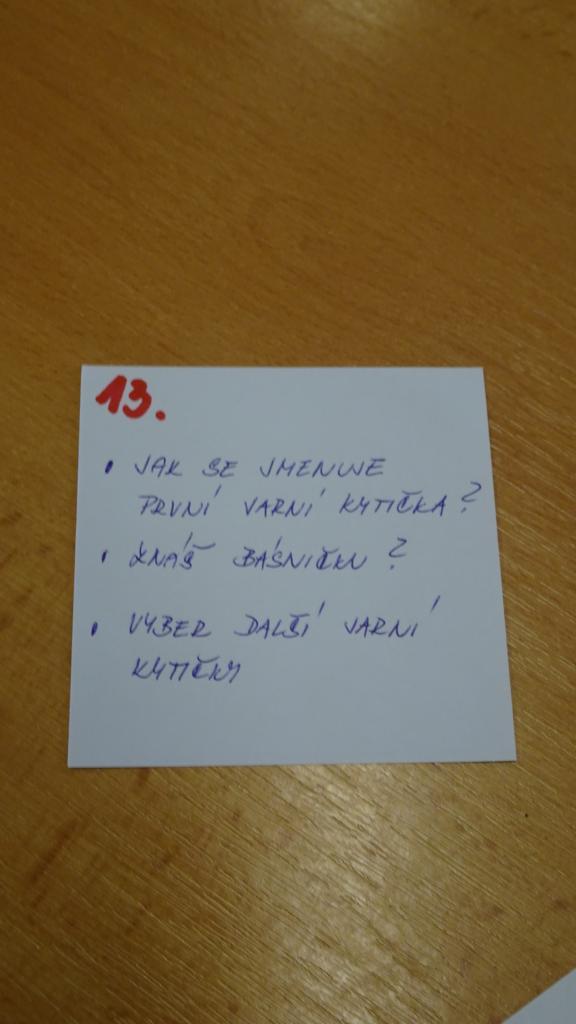 13.
• JAK SE JMENUJE
PRVNÍ JARNÍ KYTIČKA?
• ZNÁŠ BÁSNIČKU?
• VYBER DALŠÍ JARNÍ
KYTIČKY